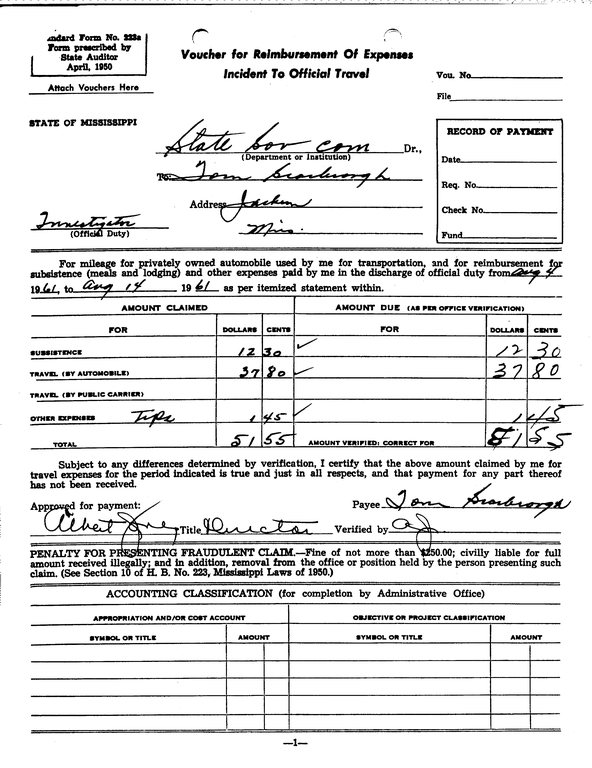 Standard Form No. 223a
Form prescribed by
State Auditor
April, 1950
Attach Vouchers Here
Voucher for Reimbursement Of Expenses
Incident To Official Travel
Vou. No.
File
STATE OF MISSISSIPPI
State Sov Com Dr.,
(Department or Institution)
To: Tom Scarbrough
Address Jackson
Miss.
Investigator
(Official Duty)
RECORD OF PAYMENT
Date
Req. No.
Check No.
Fund
For mileage for privately owned automobile used by me for transportation, and for reimbursement for
subsistence (meals and lodging) and other expenses paid by me in the discharge of official duty from Aug 4
1961, to Aug 14 1961 as per itemized statement within.
AMOUNT CLAIMED AMOUNT DUE (AS PER OFFICE VERIFICATION)
FOR DOLLARS CENTS FOR DOLLARS CENTS
SUBSISTENCE 12 30 ✓ 12 30
TRAVEL (BY AUTOMOBILE) 37 80 ✓ 37 80
TRAVEL (BY PUBLIC CARRIER)
OTHER EXPENSES Tips 1 45 ✓ 1 45
TOTAL 51 55 AMOUNT VERIFIED: CORRECT FOR 51 55
Subject to any differences determined by verification, I certify that the above amount claimed by me for
travel expenses for the period indicated is true and just in all respects, and that payment for any part thereof
has not been received.
Approved for payment: Payee Tom Scarbrough
Albert Title Director Verified by AJ
PENALTY FOR PRESENTING FRAUDULENT CLAIM.—Fine of not more than $250.00; civilly liable for full
amount received illegally; and in addition, removal from the office or position held by the person presenting such
claim. (See Section 10 of H. B. No. 223, Mississippi Laws of 1950.)
ACCOUNTING CLASSIFICATION (for completion by Administrative Office)
APPROPRIATION AND/OR COST ACCOUNT OBJECTIVE OR PROJECT CLASSIFICATION
SYMBOL OR TITLE AMOUNT SYMBOL OR TITLE AMOUNT
—1—